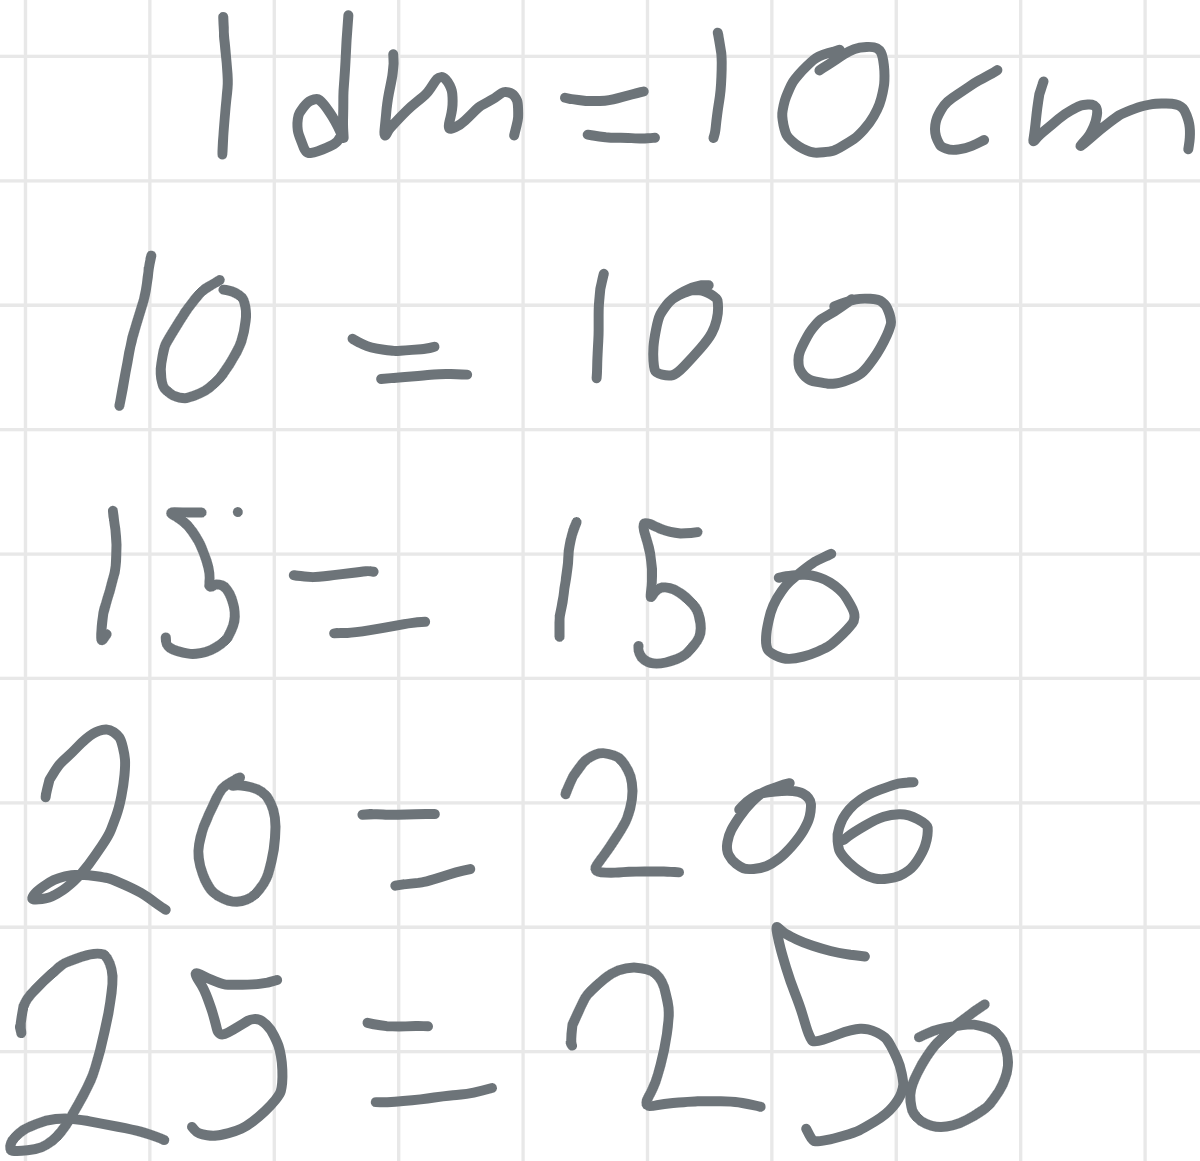 1 dm = 10 cm
10 = 100
15 = 150
20 = 206
25 = 250